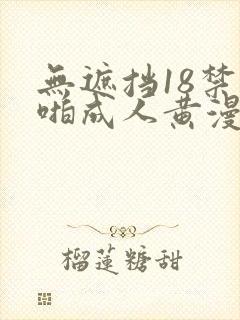 無遮挡18禁
啪成人黄漫
榴莲糖甜